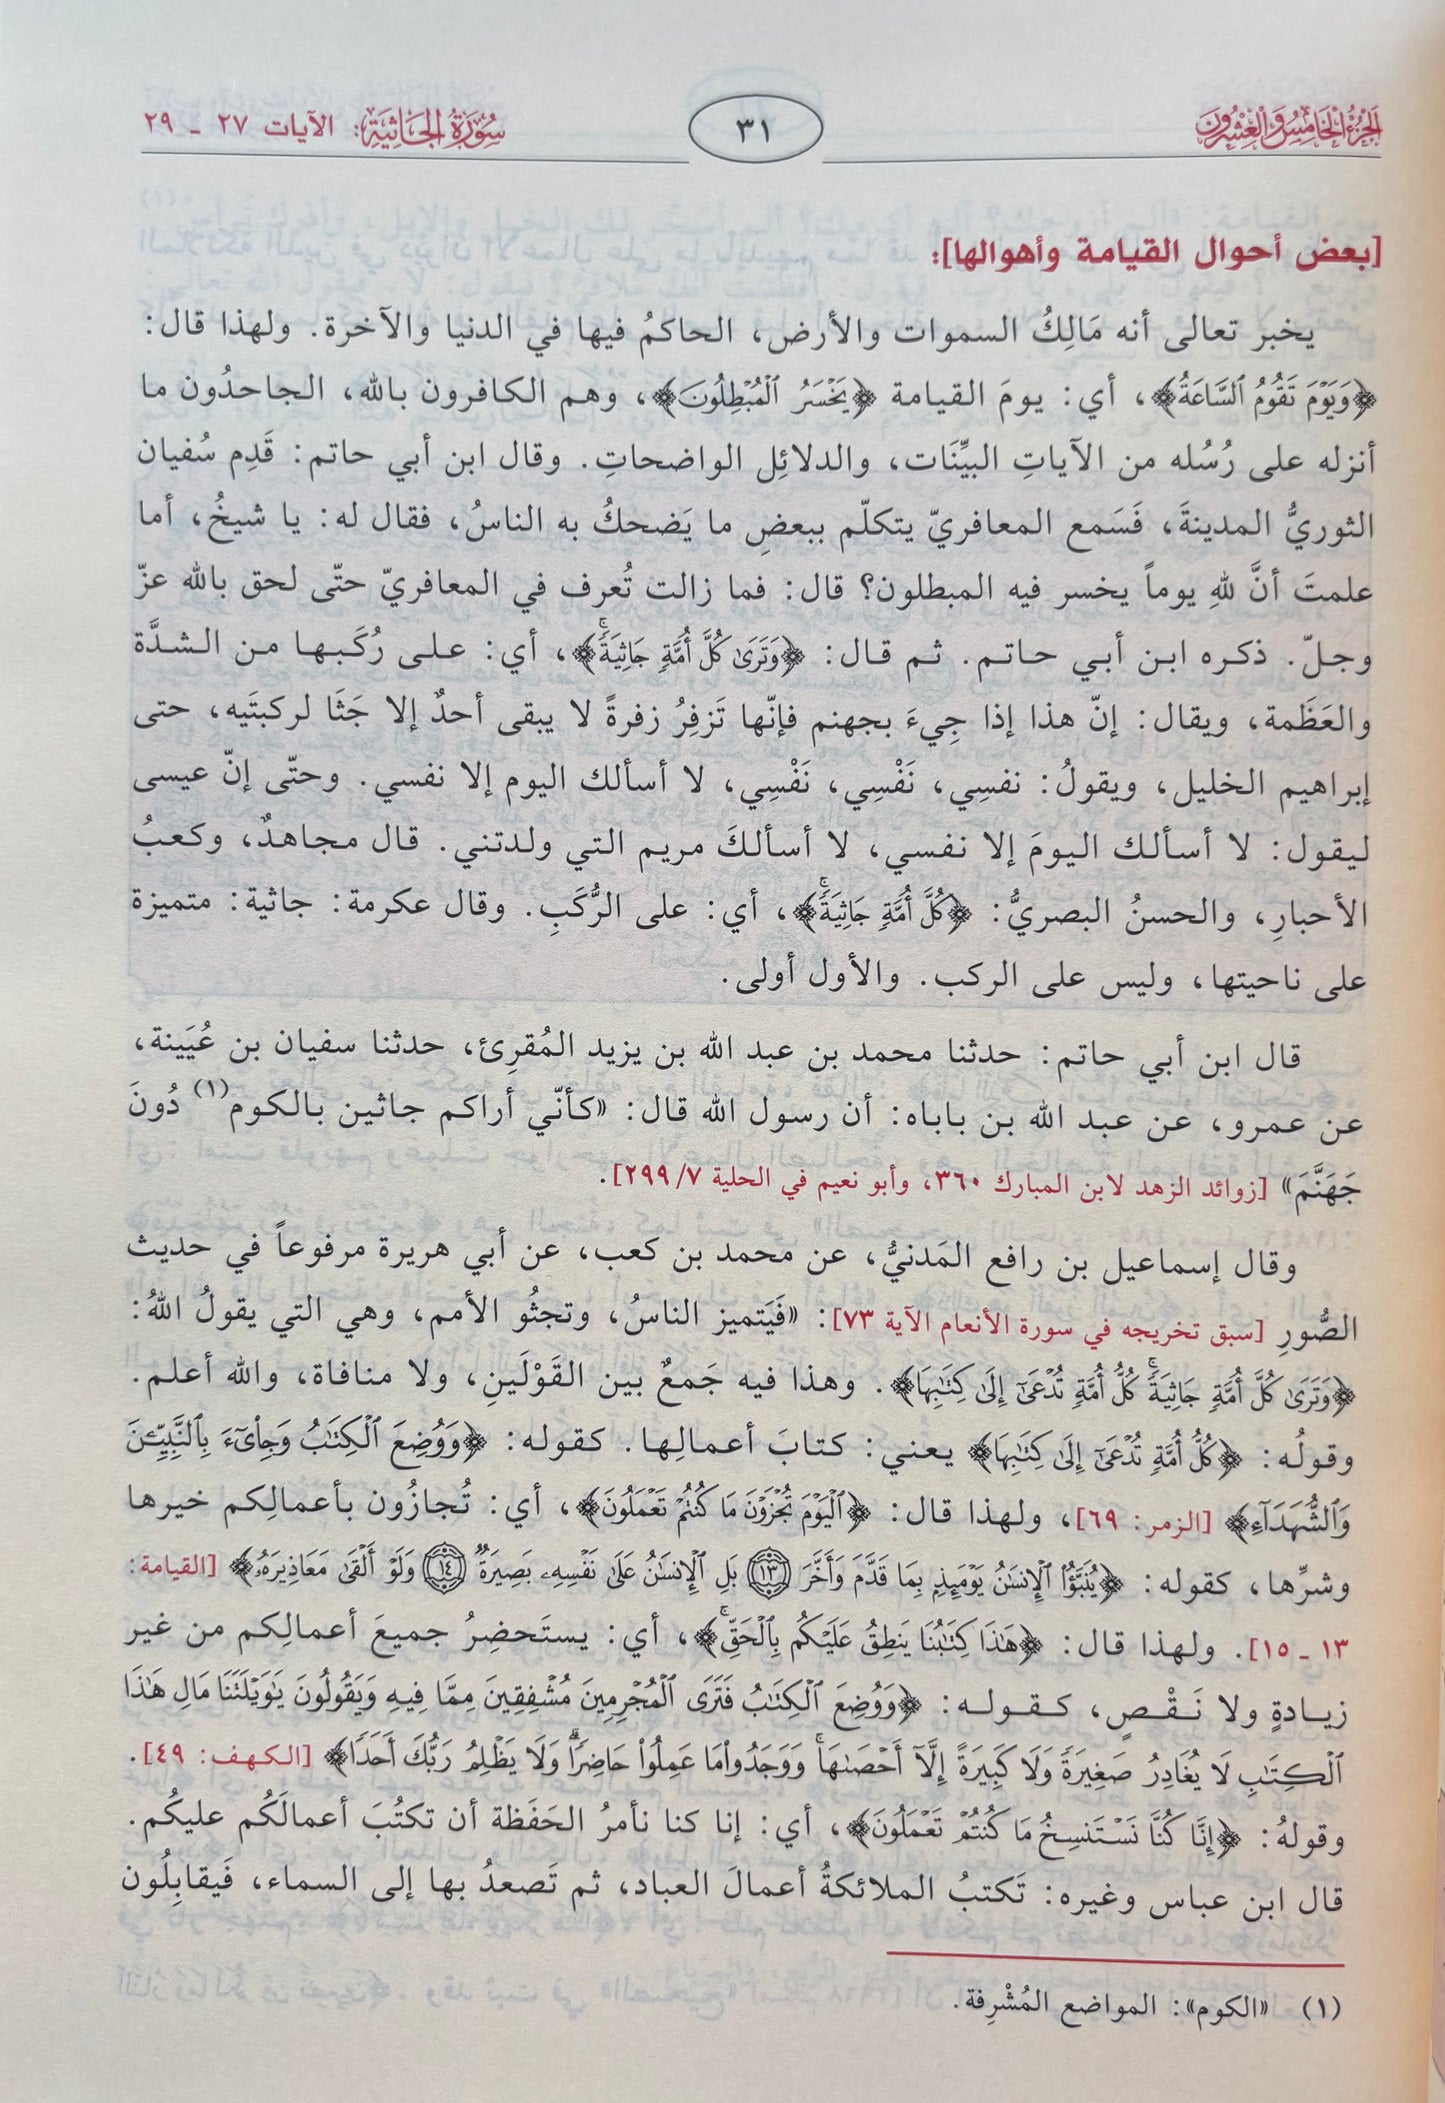 الجزء الخامس والعشرون
٣١
سورة الجاثية: الآيات ٢٧ - ٢٩
[بعض أحوال القيامة وأهوالها]:
يخبر تعالى أنه مَالِكُ السموات والأرض، الحاكمُ فيها في الدنيا والآخرة. ولهذا قال:
﴿وَيَوْمَ تَقُومُ ٱلسَّاعَةُ﴾، أي: يومَ القيامة ﴿يَخْسَرُ ٱلْمُبْطِلُونَ﴾، وهم الكافرون بالله، الجاحدُون ما
أنزله على رُسُله من الآياتِ البيِّنَات، والدلائِل الواضحاتِ. وقال ابن أبي حاتم: قَدِم سُفيان
الثوريُّ المدينةَ، فَسَمع المعافريّ يتكلّم ببعضِ ما يَضحكُ به الناسُ، فقال له: يا شيخُ، أما
علمتَ أنَّ للهِ يوماً يخسر فيه المبطلون؟ قال: فما زالت تُعرف في المعافريّ حتّى لحق بالله عزّ
وجلّ. ذكره ابن أبي حاتم. ثم قال: ﴿وَتَرَىٰ كُلَّ أُمَّةٍ جَاثِيَةً ۚ﴾، أي: على رُكَبها من الشدَّة
والعَظَمة، ويقال: إنّ هذا إذا جِيءَ بجهنم فإنّها تَزفِرُ زفرةً لا يبقى أحدٌ إلا جَثَا لركبتَيه، حتى
إبراهيم الخليل، ويقولُ: نفسِي، نَفْسِي، نَفْسِي، لا أسألك اليوم إلا نفسي. وحتّى إنّ عيسى
ليقول: لا أسألك اليومَ إلا نفسي، لا أسألكَ مريم التي ولدتني. قال مجاهدٌ، وكعبُ
الأحبارِ، والحسنُ البصريُّ: ﴿كُلَّ أُمَّةٍ جَاثِيَةً ۚ﴾، أي: على الرُّكَبِ. وقال عكرمة: جاثية: متميزة
على ناحيتها، وليس على الركب. والأول أولى.
قال ابن أبي حاتم: حدثنا محمد بن عبد الله بن يزيد المُقرِئ، حدثنا سفيان بن عُيَينة،
عن عمرو، عن عبد الله بن باباه: أن رسول الله قال: «كأنّي أراكم جاثين بالكوم(١) دُونَ
جَهَنَّمَ» [زوائد الزهد لابن المبارك ٣٦٠، وأبو نعيم في الحلية ٧/ ٢٩٩].
وقال إسماعيل بن رافع المَدنيُّ، عن محمد بن كعب، عن أبي هريرة مرفوعاً في حديث
الصُّورِ [سبق تخريجه في سورة الأنعام الآية ٧٣]: «فَيَتميز الناسُ، وتجثُو الأمم، وهي التي يقولُ اللهُ:
﴿وَتَرَىٰ كُلَّ أُمَّةٍ جَاثِيَةً ۚ كُلُّ أُمَّةٍ تُدْعَىٰٓ إِلَىٰ كِتَٰبِهَا﴾. وهذا فيه جَمعٌ بين القَوْلَينِ، ولا منافاة، والله أعلم.
وقولُه: ﴿كُلُّ أُمَّةٍ تُدْعَىٰٓ إِلَىٰ كِتَٰبِهَا﴾ يعني: كتابَ أعمالِها. كقوله: ﴿وَوُضِعَ ٱلْكِتَٰبُ وَجِا۟ىٓءَ بِٱلنَّبِيِّۦنَ
وَٱلشُّهَدَآءِ﴾ [الزمر: ٦٩]، ولهذا قال: ﴿ٱلْيَوْمَ تُجْزَوْنَ مَا كُنتُمْ تَعْمَلُونَ﴾، أي: تُجازُون بأعمالِكم خيرها
وشرِّها، كقوله: ﴿يُنَبَّؤُا۟ ٱلْإِنسَٰنُ يَوْمَئِذٍۭ بِمَا قَدَّمَ وَأَخَّرَ ١٣ بَلِ ٱلْإِنسَٰنُ عَلَىٰ نَفْسِهِۦ بَصِيرَةٌ ١٤ وَلَوْ أَلْقَىٰ مَعَاذِيرَهُۥ﴾ [القيامة:
١٣ - ١٥]. ولهذا قال: ﴿هَٰذَا كِتَٰبُنَا يَنطِقُ عَلَيْكُم بِٱلْحَقِّ ۚ﴾، أي: يستَحضِرُ جميعَ أعمالِكم من غير
زيادةٍ ولا نَقْصٍ، كقوله: ﴿وَوُضِعَ ٱلْكِتَٰبُ فَتَرَى ٱلْمُجْرِمِينَ مُشْفِقِينَ مِمَّا فِيهِ وَيَقُولُونَ يَٰوَيْلَتَنَا مَالِ هَٰذَا
ٱلْكِتَٰبِ لَا يُغَادِرُ صَغِيرَةً وَلَا كَبِيرَةً إِلَّآ أَحْصَىٰهَا ۚ وَوَجَدُوا۟ مَا عَمِلُوا۟ حَاضِرًا ۗ وَلَا يَظْلِمُ رَبُّكَ أَحَدًا﴾ [الكهف: ٤٩].
وقولهُ: ﴿إِنَّا كُنَّا نَسْتَنسِخُ مَا كُنتُمْ تَعْمَلُونَ﴾، أي: إنا كنا نأمرُ الحَفَظة أن تكتُبَ أعمالَكُم عليكُم.
قال ابن عباس وغيره: تَكتبُ الملائكةُ أعمالَ العباد، ثم تَصعدُ بها إلى السماء، فَيقابِلُون
(١) «الكوم»: المواضع المُشْرِفة.